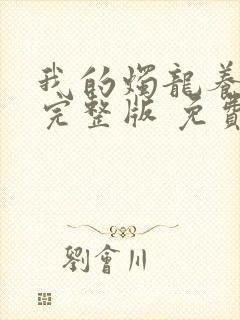 我的燭龍養
完整版 免費
劉會川